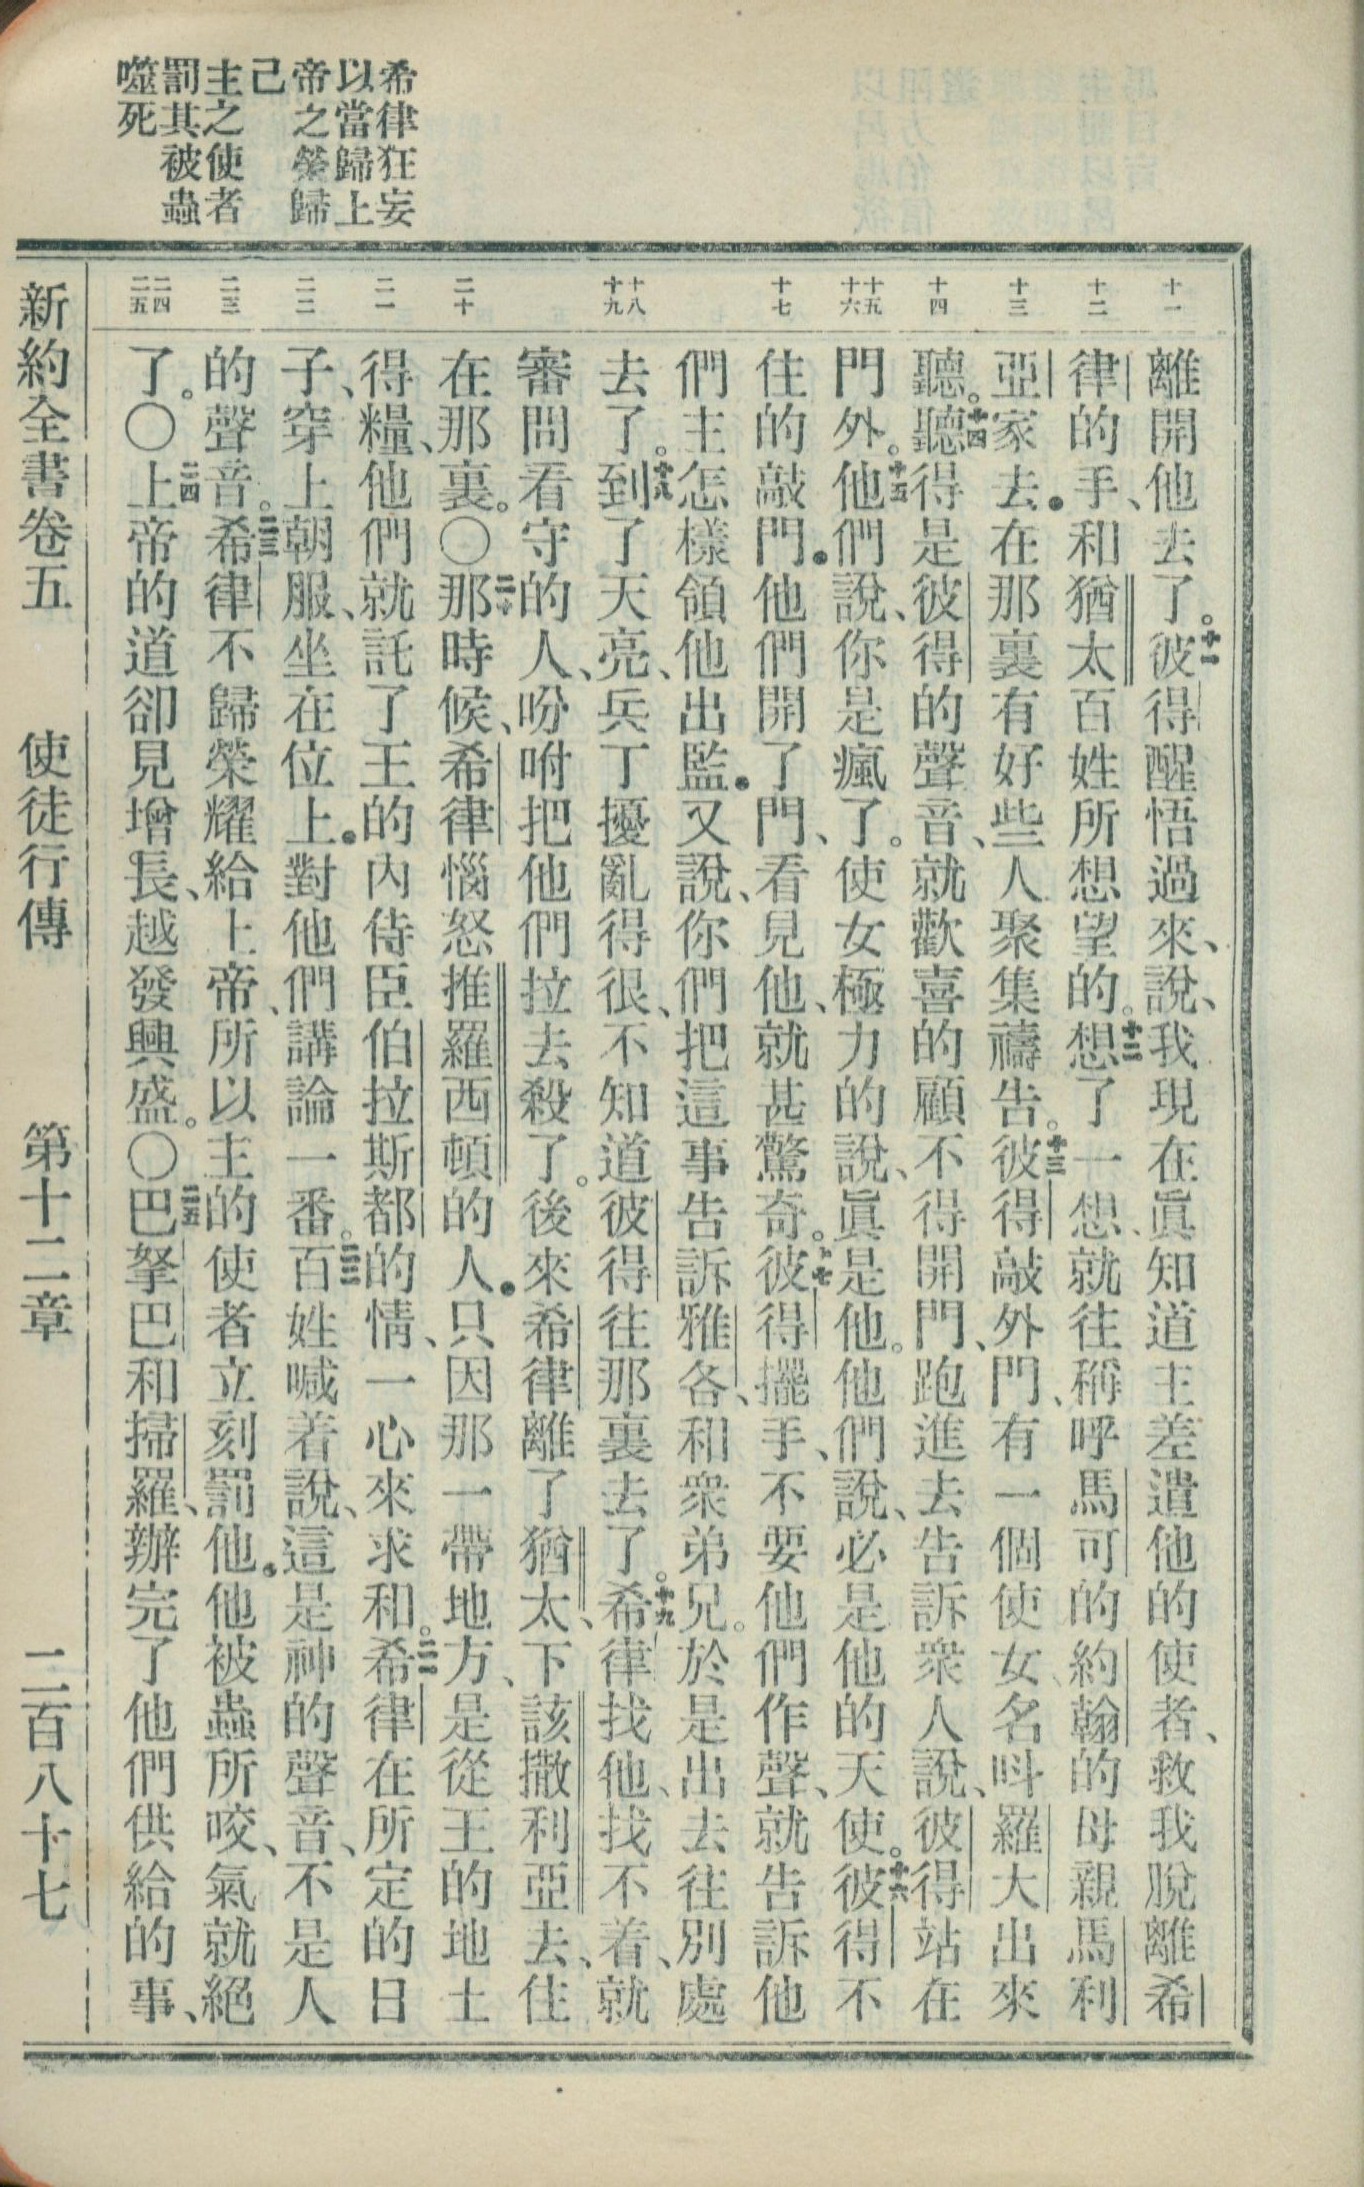 希律狂妄
以當歸上
帝之榮歸
己
主之使者
罰其被蟲
噬死
十一
十二
十三
十四
十五
十六
十七
十八
十九
二十
二一
二二
二三
二四
二五
離開他去了。十一彼得醒悟過來、說、我現在眞知道主差遣他的使者、救我脫離希
律的手、和猶太百姓所想望的。十二想了一想、就往稱呼馬可的約翰的母親馬利
亞家去．在那裏有好些人聚集禱告。十三彼得敲外門、有一個使女名呌羅大出來
聽。十四聽得是彼得的聲音、就歡喜的顧不得開門、跑進去告訴衆人說、彼得站在
門外。十五他們說、你是瘋了。使女極力的說、眞是他。他們說、必是他的天使。十六彼得不
住的敲門．他們開了門、看見他、就甚驚奇。十七彼得擺手、不要他們作聲、就告訴他
們主怎樣領他出監．又說、你們把這事告訴雅各、和衆弟兄。於是出去往別處
去了。十八到了天亮、兵丁擾亂得很、不知道彼得往那裏去了。十九希律找他、找不着、就
審問看守的人、吩咐把他們拉去殺了。後來希律離了猶太、下該撒利亞去、住
在那裏。〇二十那時候、希律惱怒推羅西頓的人．只因那一帶地方、是從王的地土
得糧、他們就託了王的內侍臣伯拉斯都的情、一心來求和。二一希律在所定的日
子、穿上朝服、坐在位上．對他們講論一番。二二百姓喊着說、這是神的聲音、不是人
的聲音。二三希律不歸榮耀給上帝、所以主的使者立刻罰他．他被蟲所咬、氣就絕
了。〇二四上帝的道卻見增長、越發興盛。〇二五巴拏巴和掃羅、辦完了他們供給的事、
新約全書卷五 使徒行傳 第十二章 二百八十七